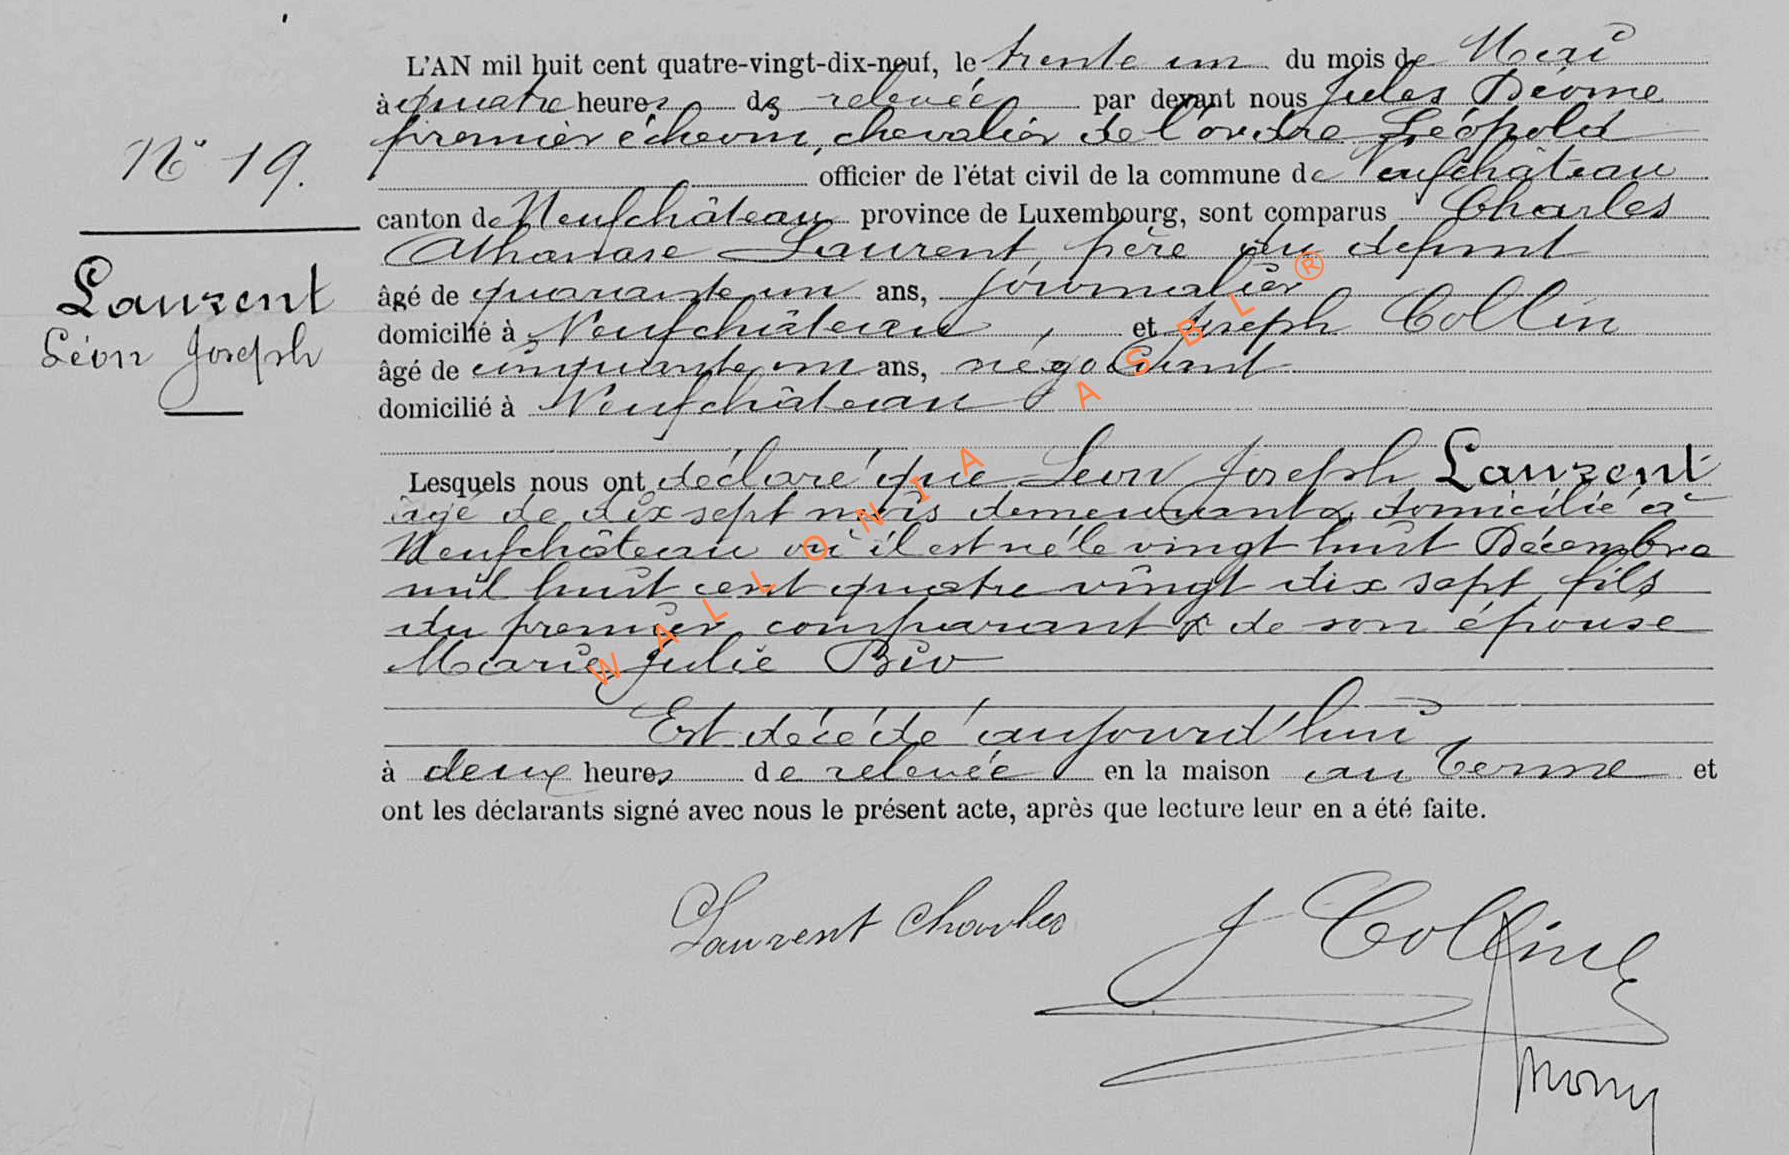 L'AN mil huit cent quatre-vingt-dix-neuf, le trente un du mois de Mai
à quatre heures de relevée par devant nous Jules Déome
premier échevin, chevalier de l'ordre Léopold
N° 19.
officier de l'état civil de la commune de Neufchâteau
canton de Neufchâteau province de Luxembourg, sont comparus Charles
Athanase Laurent, père du defunt
Laurent
Léon Joseph
âgé de quarante un ans, journalier
domicilié à Neufchâteau, et Joseph Collin
âgé de cinquante un ans, négociant
domicilié à Neufchâteau
Lesquels nous ont déclaré que Léon Joseph Laurent
âgé de dix sept mois demeurant & domicilié à
Neufchâteau où il est né le vingt huit Décembre
mil huit cent quatre vingt dix sept fils
du premier comparant & de son épouse
Marie Julie Biv
Est décédé aujourd'hui
à deux heures de relevée en la maison au Terme et
ont les déclarants signé avec nous le présent acte, après que lecture leur en a été faite.
Laurent Charles
J Collin
WALLONIA ASBL ®